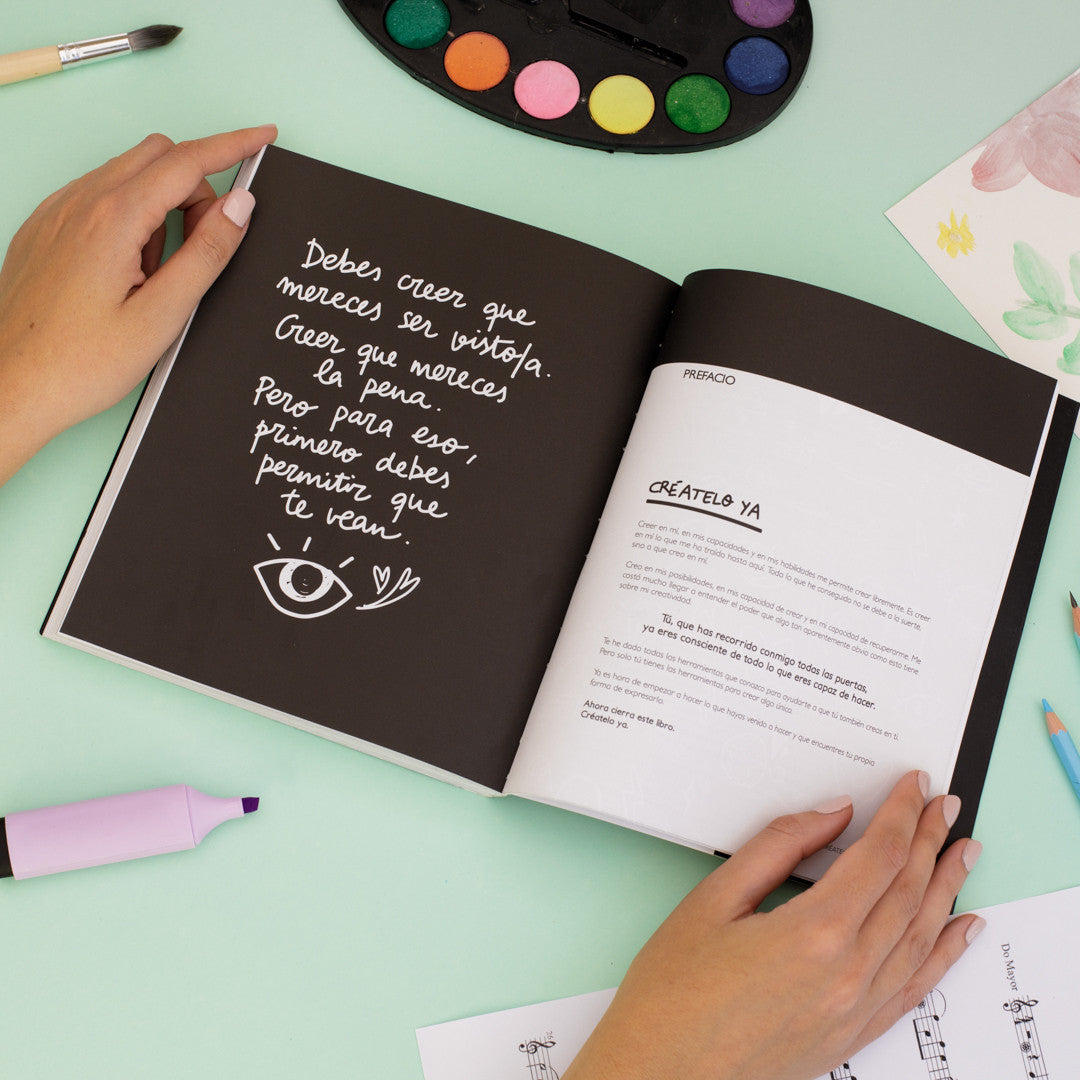 Debes creer que
mereces ser visto/a.
Creer que mereces
la pena.
Pero para eso,
primero debes
permitir que
te vean.
PREFACIO
CRÉATELO YA
Creer en mí, en mis capacidades y en mis habilidades me permite crear libremente. Es creer
en mí lo que me ha traído hasta aquí. Todo lo que he conseguido no se debe a la suerte,
sino a que creo en mí.
Creo en mis posibilidades, en mi capacidad de crear y en mi capacidad de recuperarme. Me
costó mucho llegar a entender el poder que algo tan aparentemente obvio como esto tiene
sobre mi creatividad.
Tú, que has recorrido conmigo todas las puertas,
ya eres consciente de todo lo que eres capaz de hacer.
Te he dado todas las herramientas que conozco para ayudarte a que tú también creas en ti.
Pero solo tú tienes las herramientas para crear algo único.
Ya es hora de empezar a hacer lo que hayas venido a hacer y que encuentres tu propia
forma de expresarlo.
Ahora cierra este libro.
Créatelo ya.
Do Mayor